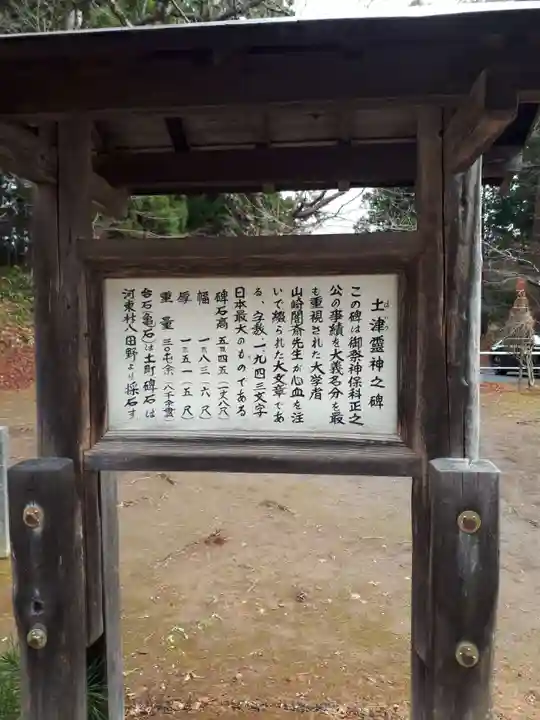 土津靈神之碑
はにつ
この碑は御祭神保科正之
公の事績を大義名分を最
も重視された大学者
山崎闇斎先生が心血を注
いで綴られた大文章であ
る、字数、一、九四三文字
日本最大のものである
碑石高 五米四五(一丈八尺)
幅 一米八三(六尺)
厚 一米五一(五尺)
重量 三〇屯余(八千余貫)
台石(亀石)は土町碑石は
河東村八田野より採石す